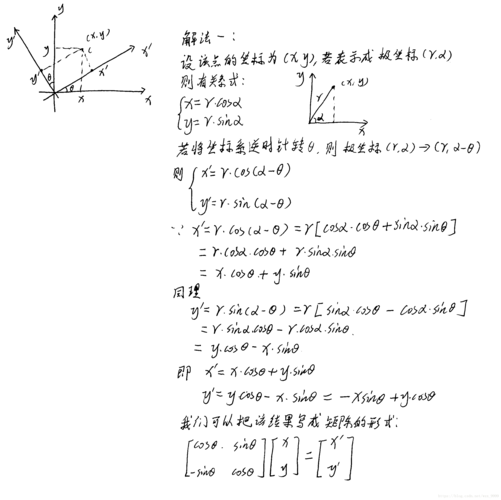 y
y'
(x,y)
x'
y
c
y'
x'
θ
θ
x
x
解法一:
设该点的坐标为(x,y),若表示成极坐标(r.α)
则有关系式:
x=r·cosα
y=r·sinα
y
(x,y)
r
α
x
若将坐标系逆时针转θ,则极坐标(r,α)→(r,α-θ)
则 { x'=r·cos(α-θ)
y'=r·sin(α-θ)
∵ x'=r·cos(α-θ)=r[cosα·cosθ+sinα·sinθ]
=r·cosα·cosθ+r·sinα·sinθ
=x·cosθ+y·sinθ
同理
y'=r·sin(α-θ)=r[sinα·cosθ-cosα·sinθ]
=r·sinα·cosθ-r·cosα·sinθ.
=y·cosθ-x·sinθ
即 x'=x·cosθ+y·sinθ
y'=y·cosθ-x·sinθ=-xsinθ+ycosθ
我们可以把该结果写成矩阵的形式:
[cosθ. sinθ] [x] = [x']
[-sinθ cosθ] [y] [y']